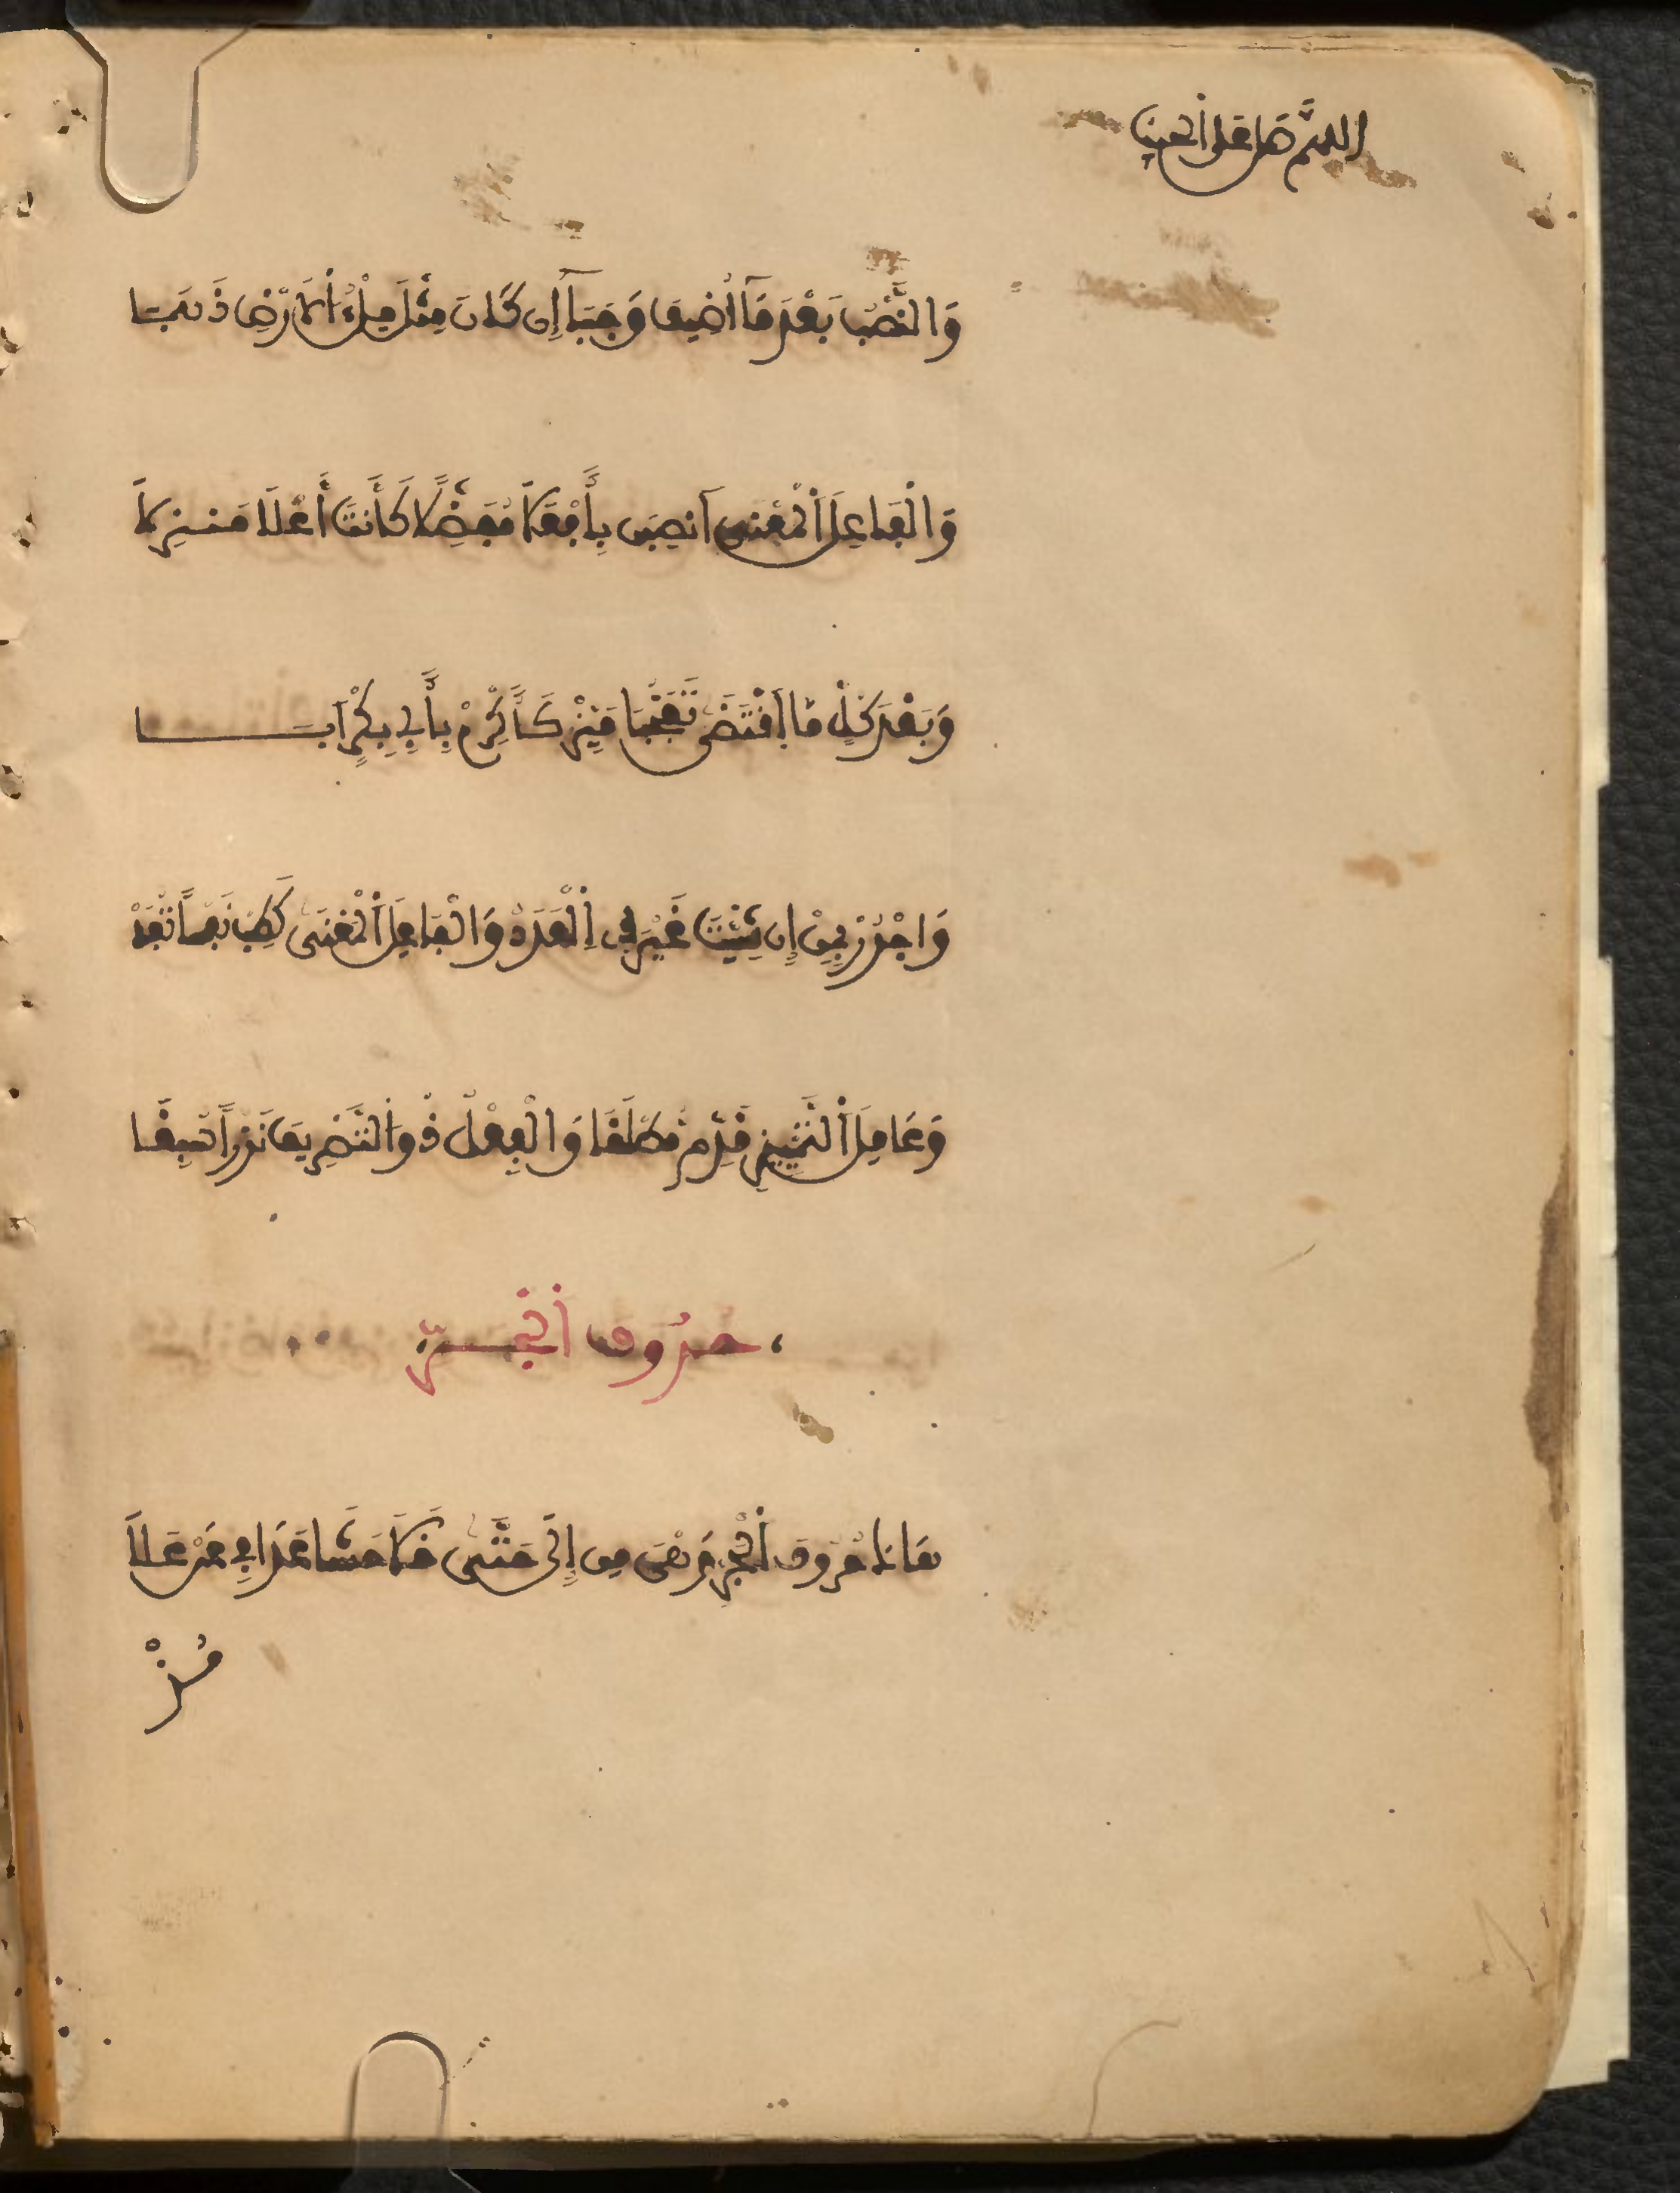 اللهم صل على الحبيب
وَالنَّصْبُ بَعْدَ مَآ أُضِيفَ وَجَبَآ إِن كَانَ مِثْلَ مِلْءُ اُلَارْضِ ذَهَبَا
وَالْفَاعِلَ اَلْمَعْنَى آنصِبَن بِأَفْعَلَا مُفَضِّلًا كَأَنتَ أَعْلَا مَنزِلَا
وَبَعْدَ كُلِّ مَا اَقْتَضَى تَعَجُّبَا مَيِّزْ كَأَكْرِمْ بِأَبِي بَكْرٍ اَبَا
وَاجْرُرْ بِمِنْ إِن شِئْتَ غَيْرَ ذِي اِلْعَدَدْ وَالْفَاعِلِ اَلْمَعْنَى كَطِبْ نَفْسًا تُفَدْ
وَعَامِلَ اَلتَّمْيِيزِ قَدِّمْ مُطْلَقَا وَالْفِعْلُ ذُو اُلتَّصْرِيفِ نَزْرًا سُبِقَا
حرُوف اَلْجَرِّ
هَاكَ حُرُوفَ اَلْجَرِّ وَهْىَ مِن إِلَى حَتَّى خَلَا حَشَا عَدَا فِي عَنْ عَلَا
مُذْ